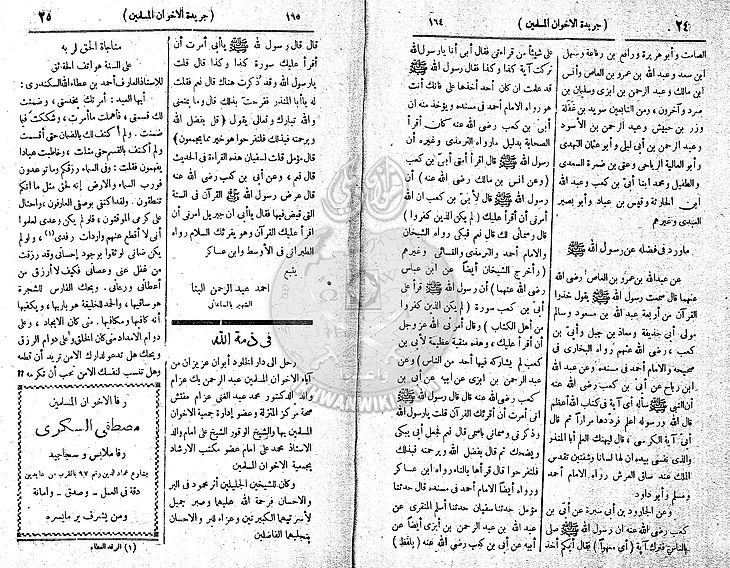 ٢٤
( جريدة الاخوان المسلمين )
١٦٤
الصامت وأبو هريرة ورافع بن رفاعة وسهل
ابن سعد وعبد الله بن عمرو بن العاص وأنس
ابن مالك وعبد الرحمن بن ابزى وسليمان بن
صرد وآخرون ، ومن التابعين سويد بن غفلة
وزر بن حبيش وعبد الرحمن بن الأسود
وعبد الرحمن بن أبي ليلى وأبو عثمان النهدى
وأبو العالية الرياحى وعتى بن ضمرة السعدى
والطفيل ومحمد ابنا أبى بن كعب وعبد الله
ابن الحارثة وقيس بن عباد وأبو بصير
العبدى وغيرهم
ماورد فى فضله عن رسول الله ﷺ
عن عبد الله بن عمرو بن العاص رضى الله
عنهما قال سمعت رسول الله ﷺ يقول خذوا
القرآن من أربعة عبد الله بن مسعود وسالم
مولى أبى حذيفة ومعاذ بن جبل وأبى بن
كعب ، رضى الله عنهم رواه البخارى فى
صحيحه والامام أحمد فى مسنده وعن عبد الله
ابن رباح عن أبى بن كعب رضى الله عنه
أن النبى ﷺ سأله أى آية فى كتاب الله أعظم
قال الله ورسوله اعلم فرددها مراراً ثم قال
أبى آية الكرسى ، قال ليهنك العلم أبا المنذر
والذى نفسى بيده ان لها لسانا وشفتين تقدس
الملك عند ساق العرش رواه الامام أحمد
ومسلم وأبو داود
وعن الجارود بن أبى سبرة عن أبى بن
كعب رضى الله عنه ان رسول الله ﷺ صلى
بالناس فترك آية ( أى سهواً ) فقال أيكم أخذ
على شيئاً من قراءتى فقال أبى أنا يارسول الله
تركت آية كذا وكذا فقال رسول الله ﷺ
قد علمت ان كان أحد أخذها على فانك أنت
هو رواه الامام أحمد فى مسنده ويؤخذ منه ان
أبى بن كعب رضى الله عنه كان أقرأ
الصحابة بدليل مارواه الترمذى وغيره أن
رسول الله ﷺ قال اقرأ أمتى أبى بن كعب
( وعن انس بن مالك رضى الله عنه ) أن
رسول الله ﷺ قال لأبى بن كعب ان الله
أمرنى أن أقرأ عليك ( لم يكن الذين كفروا )
قال وسمانى لك قال نعم فبكى رواه الشيخان
والامام أحمد والترمذى والنسائى وغيرهم
( وأخرج الشيخان أيضاً عن ابن عباس
رضى الله عنهما ) أن رسول الله ﷺ قرأ على
أبى بن كعب سورة ( لم يكن الذين كفروا
من أهل الكتاب ) وقال أمرنى الله عز وجل
أن أقرأ عليك ، وهذه منقبة عظيمة لأبى بن
كعب لم يشاركه فيها أحد من الناس ( وعن
عبد الرحمن بن ابزى عن أبيه عن أبى بن
كعب رضى الله عنه قال قال رسول الله ﷺ
انى أمرت أن أقرئك القرآن قلت يارسول الله
وذكرنى وسمانى باسمى قال نعم فجعل أبى يبكى
ويضحك ثم قال بفضل الله وبرحمته فبذلك
فلتفرحوا قال قرأها بالتاء رواه ابن عساكر
ورواه أيضاً الامام أحمد فى مسنده قال حدثنا
مؤمل حدثنا سفيان حدثنا أسلم المنقرى عن
عبد الله بن عبد الرحمن بن أبزى أيضاً عن
أبيه عن أبى بن كعب رضى الله عنه ( بلفظ )
١٦٥
( جريدة الاخوان المسلمين )
٢٥
قال قال رسول الله ﷺ ياأبى أمرت أن
أقرأ عليك سورة كذا وكذا قال قلت
يارسول الله وقد ذكرت هناك قال نعم فقلت
له ياأبا المنذر ففرحت بذلك قال وما يمنعنى
والله تبارك وتعالى يقول ( قل بفضل الله
وبرحمته فبذلك فلتفرحوا هو خير مما يجمعون )
قال مؤمل قلت لسفيان هذه القراءة فى الحديث
قال نعم ، وعن أبى بن كعب رضى الله عنه
قال عرض رسول الله ﷺ القرآن فى السنة
التى قبض فيها فقال ياأبى ان جبريل امرنى أن
أقرأ عليك القرآن وهو يقرئك السلام رواه
الطبرانى فى الأوسط وابن عساكر
يتبع
احمد عبد الرحمن البنا
الشهير بالساعاتى
فى ذمة الله
رحل الى دار الخلود أبوان عزيزان من
آباء الاخوان المسلمين عبد الرحمن بك عزام
والد الدكتور محمد عبد الغنى عزام مفتش
صحة مركز المنزلة وعضو إدارة جمعية الاخوان
المسلمين بها والشيخ الوقور الشيخ على امام والد
الاستاذ محمد على امام عضو مكتب الارشاد
بجمعية الاخوان المسلمين
وكان للشيخين الجليلين أثر محمود فى البر
والاحسان فرحمة الله عليهما وصبر جميل
لأسرتيهما الكبيرتين وعزاء للبر والاحسان
بنجليهما الفاضلين
مناجاة الحق لربه
على ألسنة هواتف الحقائق
للاستاذ العارف أحمد بن عطاء الله السكندرى :
أيها العبد : أمرتك بخدمتى ، وضمنت
لك قسمتى ، فأهملت ماأمرت ، وشككت فيما
ضمنت . ولم أكتف لك بالضمان حتى أقسمت
ولم أكتف بالقسم حتى مثلت ، وخاطبت عبادا
يفهمون فقلت : وفى السماء رزقكم وما توعدون
فورب السماء والارض إنه لحق مثل ما انكم
تنطقون . ولقد اكتفى بوصفى العارفون ، واحتال
على كرمى الموقنون ، فلو لم يكن وعدى لعلموا
أنى لا أقطع عنهم واردات رفدى (١) ، ولو لم
يكن ضمانى لوثقوا بوجود إحسانى وقد رزقت
من غفل عنى وعصانى فكيف لا أرزق من
أطاعنى ورعانى . ويحك الغارس للشجرة
هو ساقيها ، والممد للخليقة هو باريها ، ويكفيها
أنه كافيها ومكافيها . منى كان الايجاد ، وعلى
دوام الامداد منى كان الخلق وعلى دوام الرزق
ويحك هل تدعو لدارك الا من تريد أن تطعمه
وهل تنسب لنفسك الا من تحب أن تكرمه ؟؟
رفا الاخوان المسلمين
مصطفى السكرى
رفا ملابس وسجاجيد
بشارع عماد الدين رقم ٩٧ بالقرب من عابدين
دقة فى العمل – وصدق – وأمانة
ومن يشرف ير مايسره
(١) الرفد العطاء